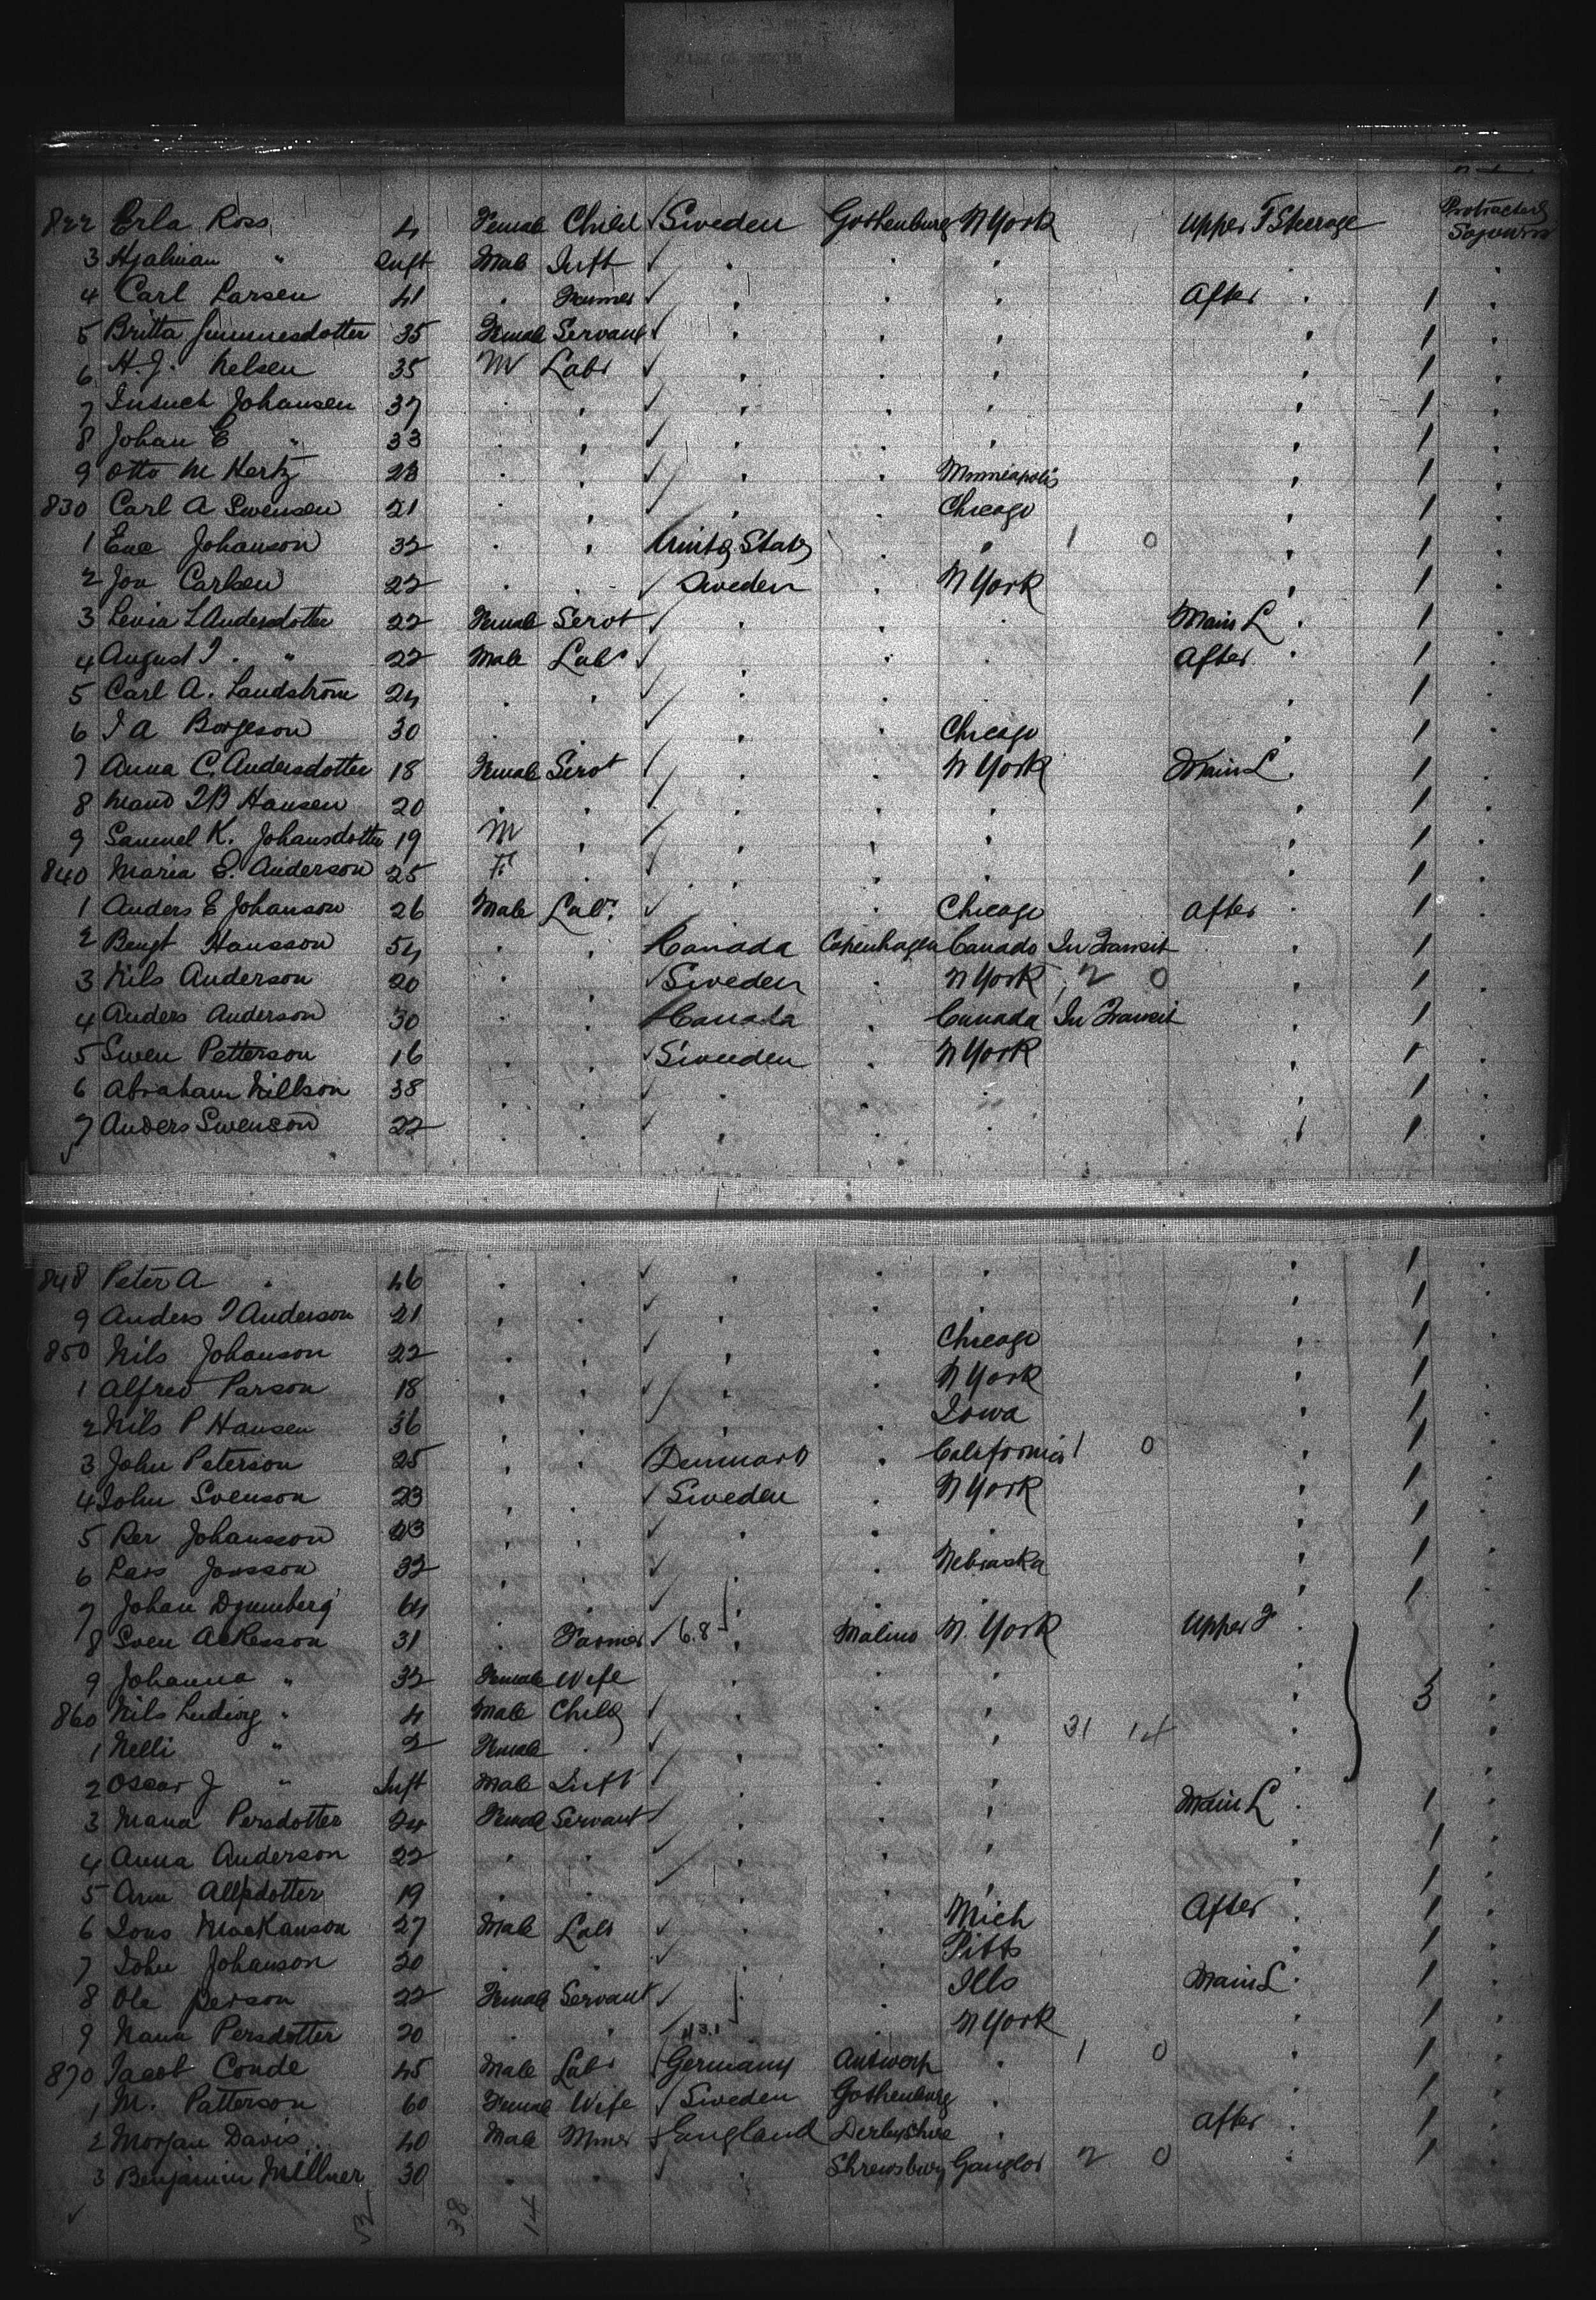 822 Erla Ross 4 Female Child Sweden Gothenburg N York Upper F Steerage Protracted Sojourn
3 Hjalmar " Inft Male Inft
4 Carl Larsen 41 Farmer After 1
5 Britta 35 Female Servant 1
6 H. J. Nelsen 35 M Labr 1
7 Johansen 37 1
8 Johan E " 33 1
9 Otto M Hertz 28 Minneapolis 1
830 Carl A Swensen 21 Chicago 1
1 Johanson 32 United States 1 0 1
2 Jon Carlsen 22 Sweden N York 1
3 L Andersdotter 22 Female Servt Main L 1
4 August " 22 Male Labr After 1
5 Carl A. Landström 24 1
6 A Borgeson 30 Chicago 1
7 Anna C. Andersdotter 18 Female Servt N York Main L 1
8 Hansen 20 1
9 Samuel K. Johansdotter 19 M 1
840 Maria E. Anderson 25 F 1
1 Anders E Johanson 26 Male Labr. Chicago After 1
2 Bengt Hansson 54 Canada Copenhagen Canada In Transit 1
3 Nils Anderson 20 Sweden N York 2 0 1
4 Anders Anderson 30 Canada Canada In Transit 1
5 Swen Petterson 16 Sweden N York 1
6 Abraham Nillson 38 1
7 Anders Swenson 22 1
848 Peter A " 46 1
9 Anders Anderson 21 1
850 Nils Johanson 22 Chicago 1
1 Alfred Parson 18 N York 1
2 Nils P Hansen 36 Iowa 1
3 John Peterson 25 Denmark California 1 0 1
4 John Svenson 23 Sweden N York 1
5 Per Johansson 23 1
6 Lars Jonsson 32 Nebraska 1
7 Johan 64 1
8 Sven Akesson 31 Farmer 6.8 Malmo N. York Upper F
9 Johanna " 32 Female Wife
860 Nils Ludvig " 4 Male Child 5
1 Nelli " 2 Female 31 14
2 Oscar J " Inft Male Inft
3 Persdotter 24 Female Servant Main L 1
4 Anna Anderson 22 1
5 19 1
6 27 Male Labr Mich After 1
7 John Johanson 20 Pitts 1
8 Ole Person 22 Female Servant Ills Main L 1
9 Persdotter 20 N York 1
870 Jacob Conde 45 Male Labr Germany Antwerp 1 0 1
1 M. Patterson 60 Female Wife Sweden Gothenburg 1
2 Morgan Davis 40 Male Miner England Derbyshire After 1
3 Benjamin Millner 30 Shrewsbury 2 0 1
38 14